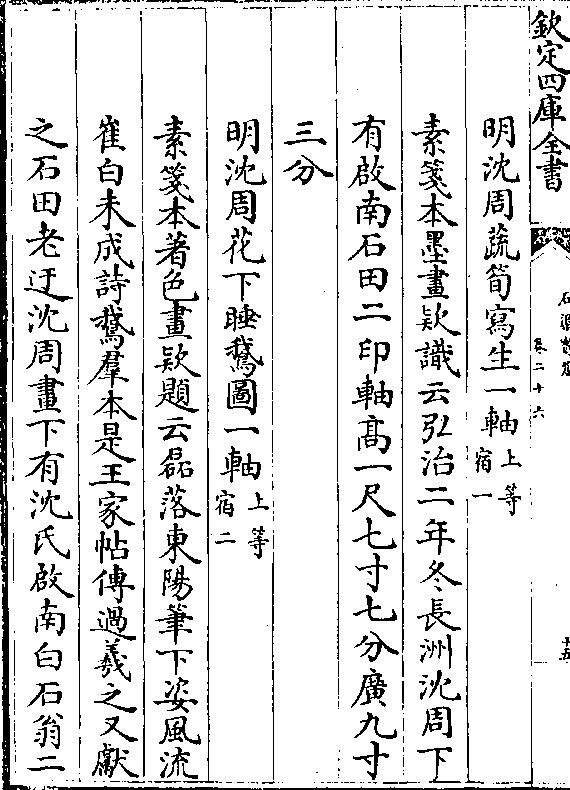 欽定四庫全書
石渠寶笈
卷二十六
十五
明沈周蔬筍寫生一軸上等宿一
素箋本墨畫欵識云弘治二年冬長洲沈周下
有啟南石田二印軸髙一尺七寸七分廣九寸
三分
明沈周花下睡鵝圖一軸上等宿二
素箋本著色畫欵題云磊落東陽筆下姿風流
崔白未成詩鵞羣本是王家帖傳過羲之又獻
之石田老迂沈周畫下有沈氏啟南白石翁二